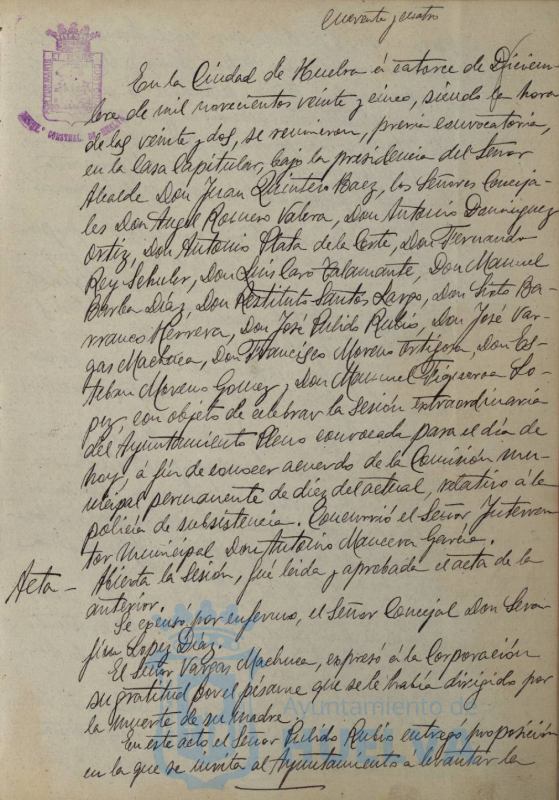 cuarenta y cuatro
En la Ciudad de Huelva á catorce de Diciem-
bre de mil novecientos veinte y cinco, siendo la hora
de las veinte y dos, se reunieron, previa convocatoria,
en la Casa Capitular, bajo la presidencia del Señor
Alcalde Don Juan Quintero Baez, los Señores Conceja-
les Don Angel Romero Valera, Don Antonio Dominguez
Ortiz, Don Antonio Plata de la Corte, Don Fernando
Rey Schuler, Don Luis Caro Talamante, Don Manuel
Barba Diaz, Don Restituto Santos Largo, Don Sixto Ba-
rranco Herrera, Don José Pulido Rubio, Don José Var-
gas Machuca, Don Francisco Moreno Ortigosa, Don Es-
teban Moreno Gomez y Don Manuel Figueroa Lo-
pez, con objeto de celebrar la sesión extraordinaria
del Ayuntamiento Pleno convocada para el día de
hoy, á fin de conocer acuerdo de la Comisión mu-
nicipal permanente de diez del actual, relativo á la
policía de subsistencia. Concurrió el Señor Interven-
tor Municipal Don Antonio Mancera Garcia.
Acta - Abierta la sesión, fué leida y aprobada el acta de la
anterior.
Se excusó por enfermo, el Señor Concejal Don Sera-
fin Lopez Diaz.
El Señor Vargas Machuca, expresó á la Corporación
su gratitud por el pésame que se le habia dirigido por
la muerte de su madre.
En este acto, el Señor Pulido Rubio entregó proposición
en la que se invita al Ayuntamiento a levantar la
Ayuntamiento de
HUELVA